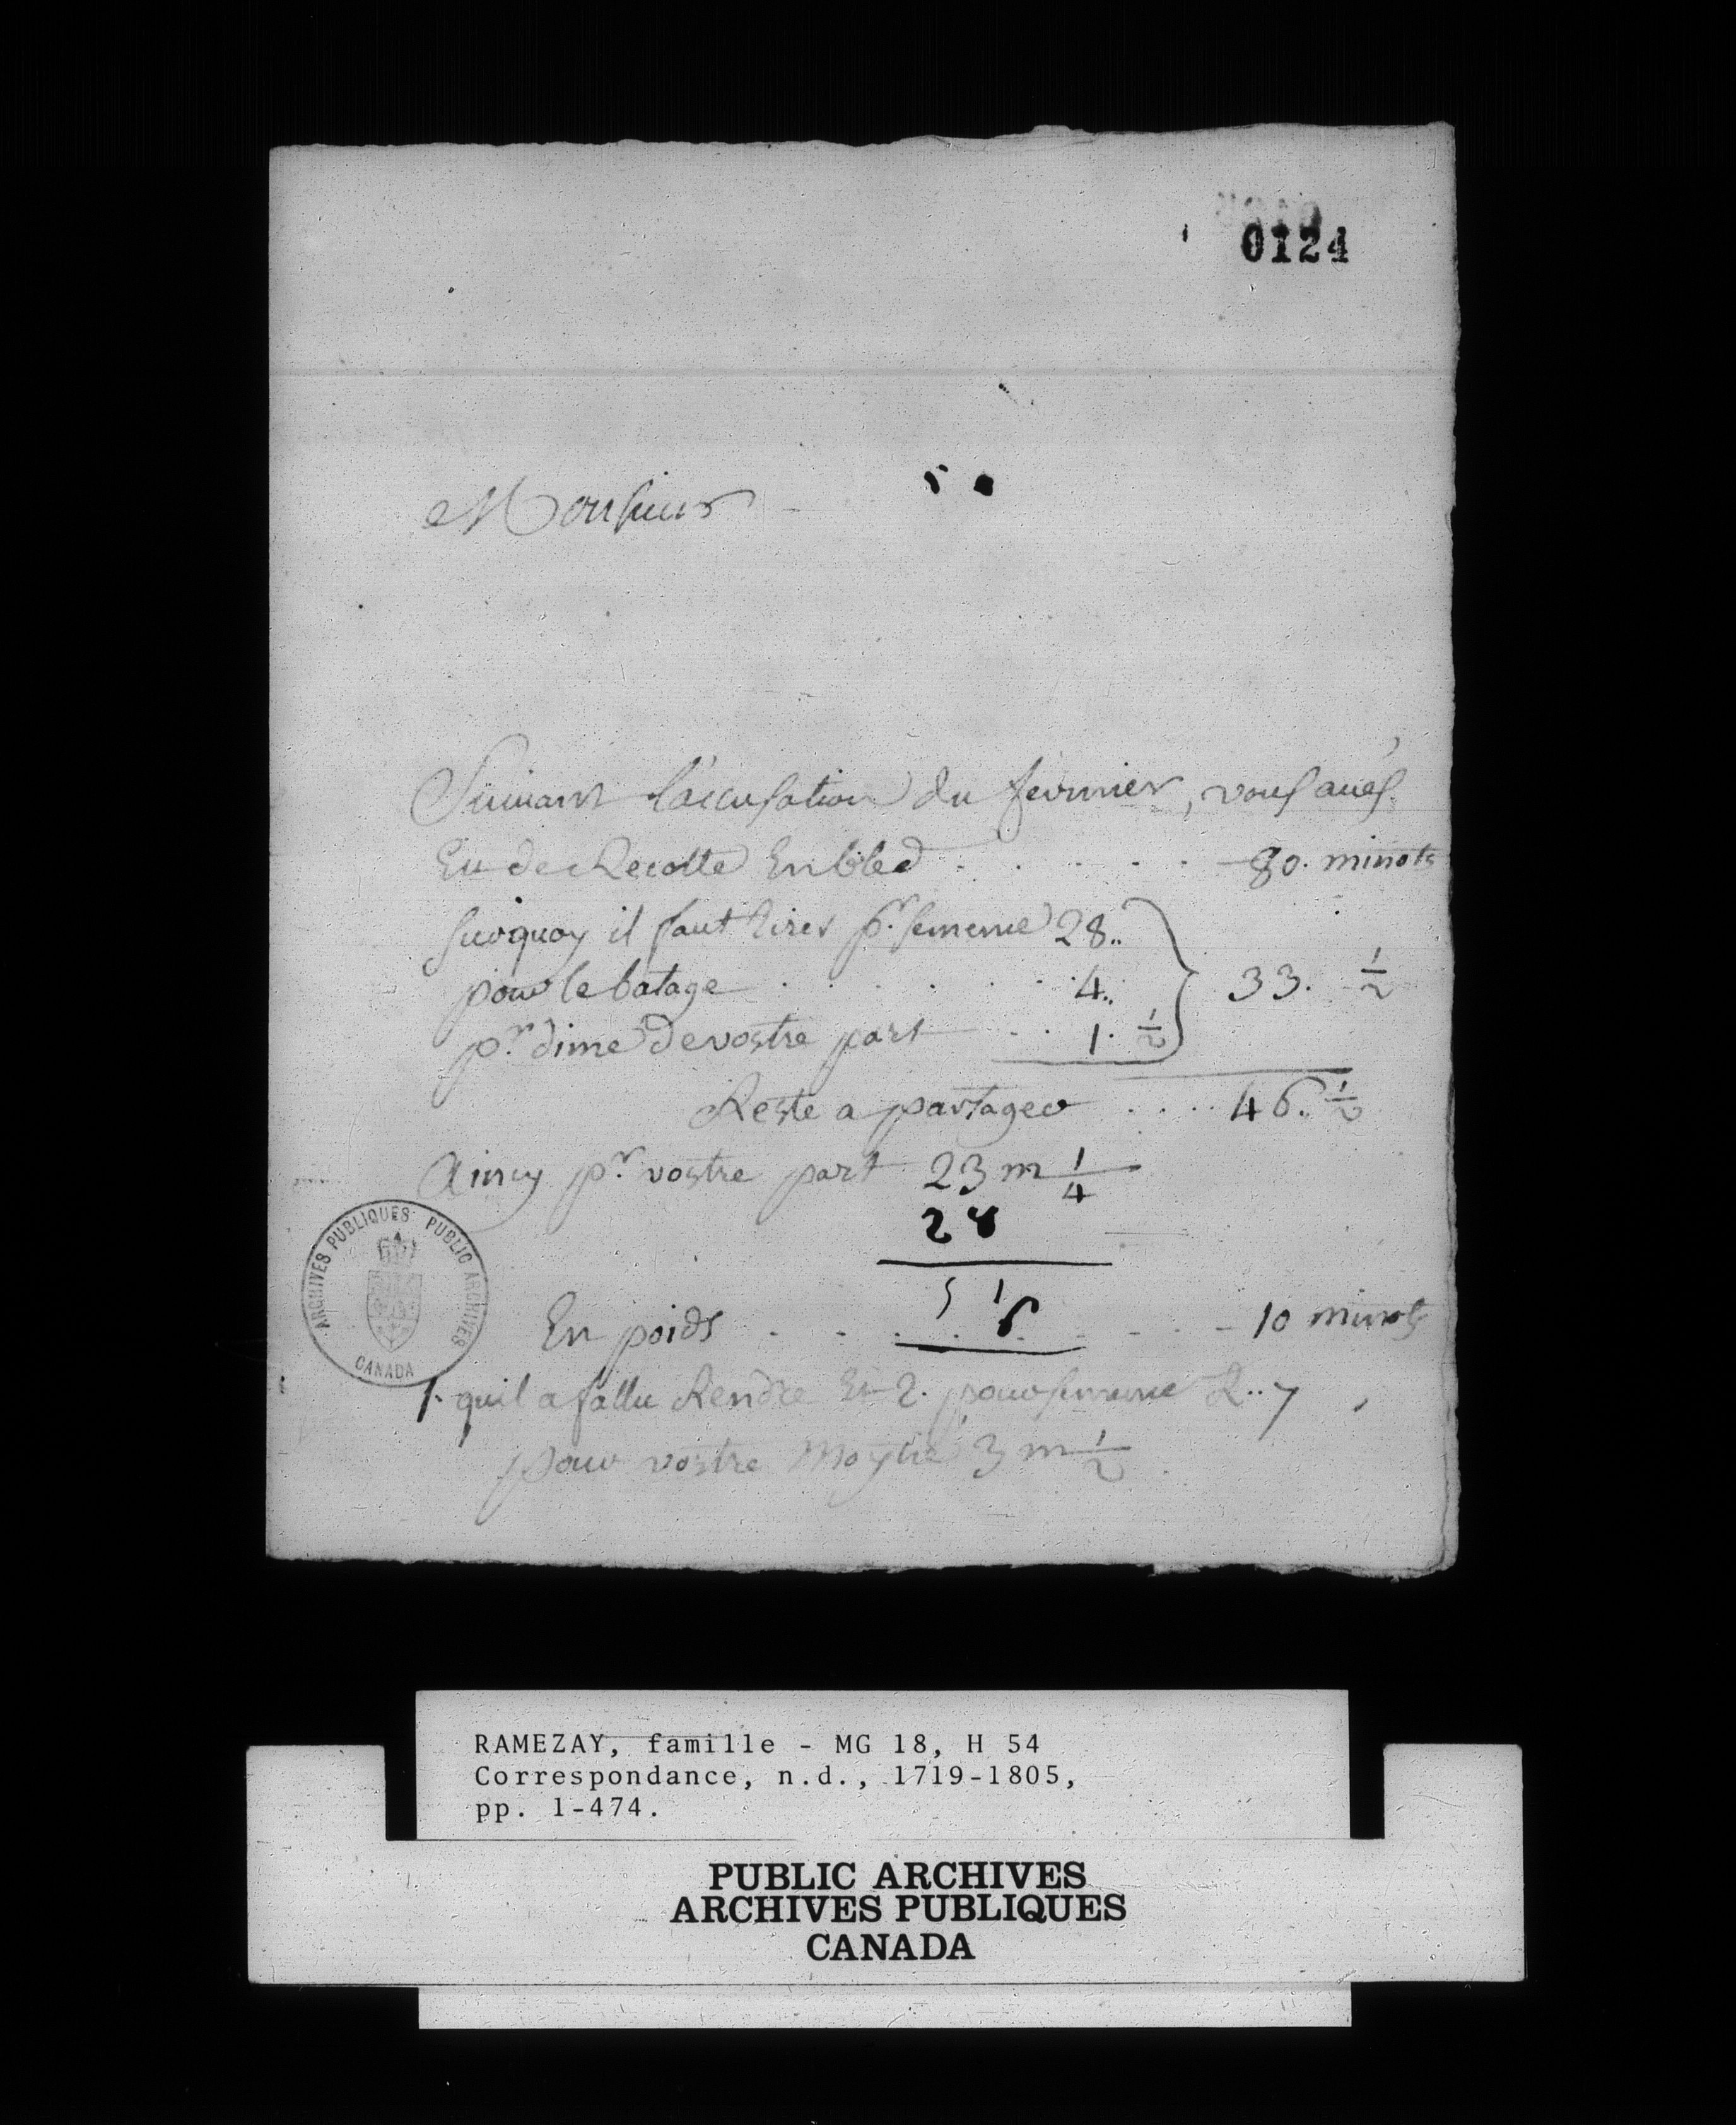 0124
Monsieur
Suivant l'accusation du fermier, vous avés
Eu de Recolte En bled . . . . . . 80. minots
surquoy il faut tirer pr. semence 28..
pour le batage . . . . . . 4..
33. 1/2
pr. dime de vostre part . . 1. 1/2
Reste a partager . . . . 46. 1/2
Aincy pr. vostre part 23 m 1/4
28
51
En poids . . . . . . 10 minots
1. quil a fallu Rendre Et 2. pour semence R..7
pour vostre Moytié 3 m 1/2
ARCHIVES PUBLIQUES PUBLIC ARCHIVES
CANADA
RAMEZAY, famille - MG 18, H 54
Correspondance, n.d., 1719-1805,
pp. 1-474.
PUBLIC ARCHIVES
ARCHIVES PUBLIQUES
CANADA